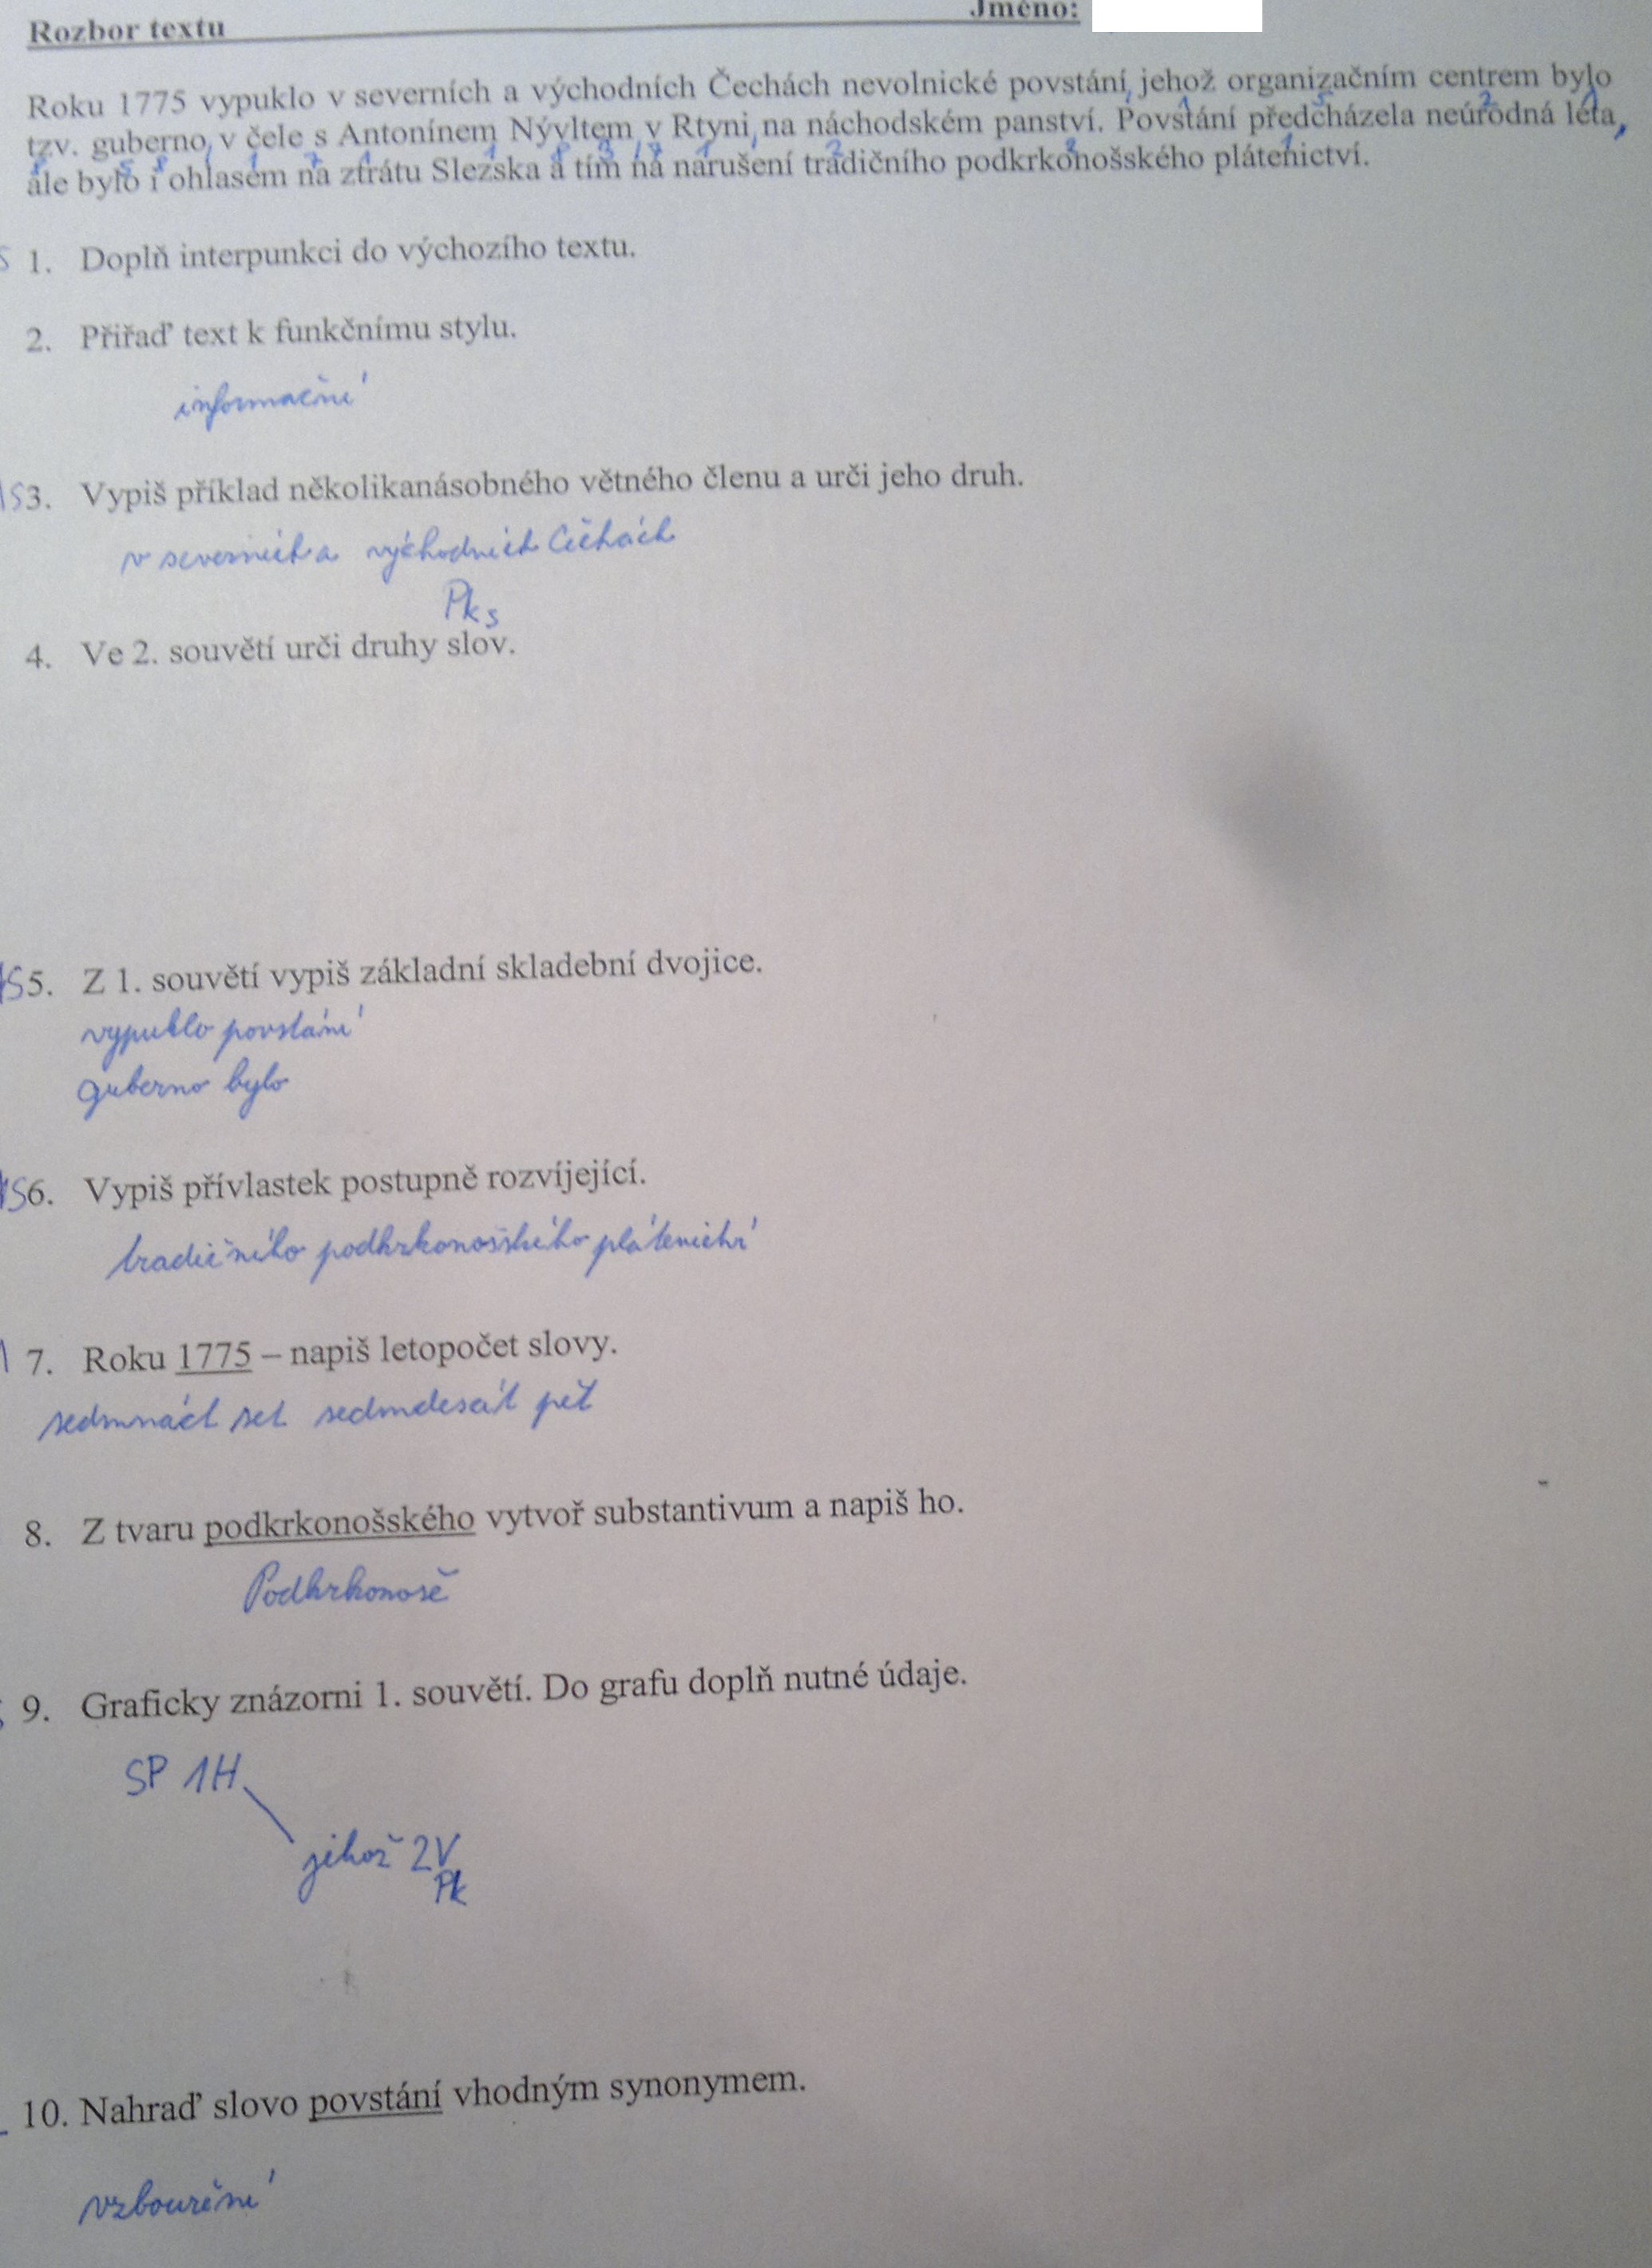 Rozbor textu Jméno:
Roku 1775 vypuklo v severních a východních Čechách nevolnické povstání, jehož organizačním centrem bylo
tzv. guberno, v čele s Antonínem Nývltem, v Rtyni, na náchodském panství. Povstání předcházela neúrodná léta,
ale bylo i ohlasem na ztrátu Slezska a tím na narušení tradičního podkrkonošského plátenictví.
S 1. Doplň interpunkci do výchozího textu.
2. Přiřaď text k funkčnímu stylu.
informační
1S 3. Vypiš příklad několikanásobného větného členu a urči jeho druh.
v severních a východních Čechách
Pks
4. Ve 2. souvětí urči druhy slov.
1S 5. Z 1. souvětí vypiš základní skladební dvojice.
vypuklo povstání
guberno bylo
1S 6. Vypiš přívlastek postupně rozvíjející.
tradičního podkrkonošského plátenictví
1 7. Roku 1775 – napiš letopočet slovy.
sedmnáct set sedmdesát pět
8. Z tvaru podkrkonošského vytvoř substantivum a napiš ho.
Podkrkonoše
9. Graficky znázorni 1. souvětí. Do grafu doplň nutné údaje.
SP 1H
jehož 2V
Pk
10. Nahraď slovo povstání vhodným synonymem.
vzbouření